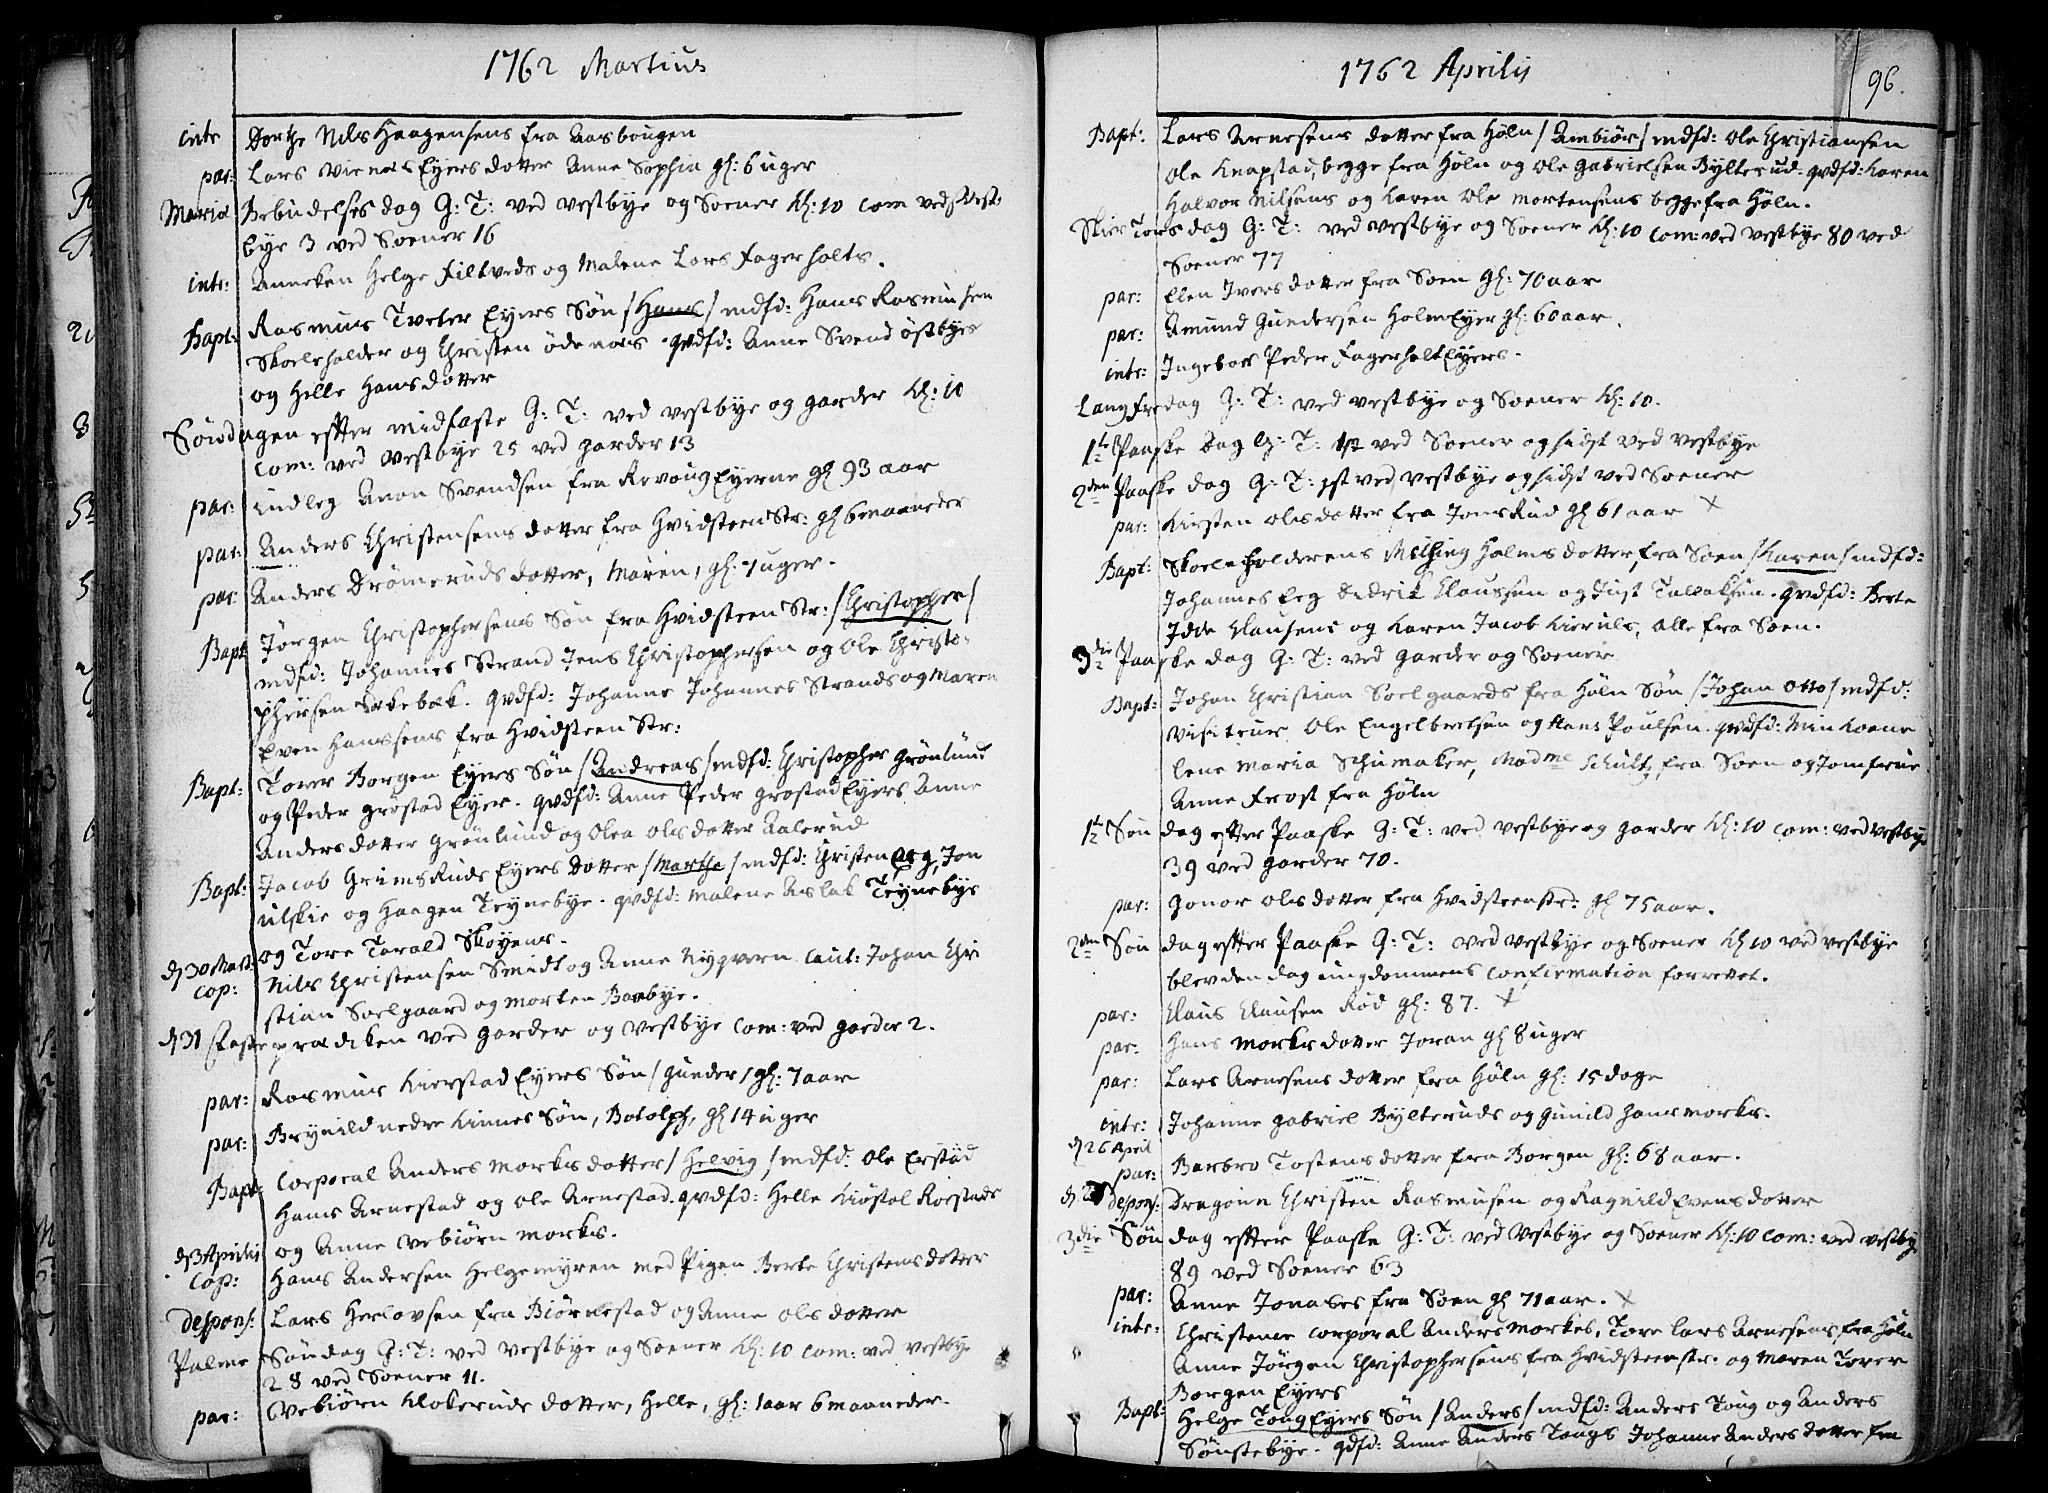 1762 Martius
intr Dorthe Nils Haagensens fra Aasbougen
par: Lars Viernes Eyers dotter Anne Sophia gl: 6 uger
Mariæ Bebudelses dag G: T: ved vestbye og Soener Kl: 10 com ved Vest-
bye 3 ved Soener 16
intr: Anneken Helge Filtveds og Malene Lars Fagerholts.
Bapt: Rasmus Tveter Eyers Søn /Hans/ mdfd: Hans Rasmusen
Skoeleholder og Christen ødenæs. qvdfd: Anne Svend østbyes
og Helle Hansdotter
Søndagen effter midfaste G: T: ved vestbye og garder Kl: 10
com: ved vestbye 25 ved garder 13
par: indleg Anon Svendsen fra Revoug Eyerne gl 93 aar
par: Anders Christensens dotter fra Hvidsteen Str: gl 6 maaneder
par: Anders Drømeruds dotter, Maren, gl: 7 uger.
Bapt Jørgen Christophersens Søn fra Hvidsteen Str: /Christopher/
mdfd: Johannes Strand Jens Christophersen og Ole Christo-
phersen Erkebæk. qvdfd: Johanne Johannes Strands og Maren
Even Hanssens fra Hvidsteen Str:
Bapt: Torer Borgen Eyers Søn /Andreas/ mdfd: Christopher Grønlund
og Peder grøstad Eyer. qvdfd: Anne Peder grøstad Eyers Anne
Andersdotter Grønlund og Olea olsdotter Aalerud
Bapt: Jacob Grimsruds Eyers Dotter /Marthe/ mdfd: Christen Berg, Jon
ulskie og Haagen Teynebye. qvdfd: Malene Aslak Teynebys
og Tore Tarald Skøyens.
d 30 Mart: cop: Nils Christensen Smidt og Anne Nygvern. caut: Johan Chri
stian Soelgaard og Morten Barbye.
d 31 Fasteprædiken ved Garder og Vestbye com: ved garder 2.
par: Rasmus Kierstad Eyers Søn /gunder/ gl: 7 aar
par: Brynild nedre Kinnes Søn, Botolph, gl 14 uger
Bapt: Corporal Anders Morks dotter /Helvig/ mdfd: Ole Erstad
Hans Arnestad og Ole Arnestad. qvdfd: Helle Kiøstol Roestads
og Anne Vebiørn morks.
d 3 Aprilis cop: Hans Andersen Helgemyren med Pigen Berte Christensdotter
despons: Lars Herlovsen fra Biørnestad og Anne olsdotter
Palme Søndag G: T: ved vestbye og Soener Kl: 10 com: ved vestbye
28 ved Soener 11.
par: Vebiørn Klokeruds dotter, Helle, gl: 1 aar 6 maaneder.
1762 Aprilis 96.
Bapt: Lars Arnesens dotter fra Høln /Anbiør/ mdfd: Ole Christiansen
Ole Knapstad, begge fra Høln og Ole Gabrielsen Bylterud. qvdfd: Karen
Halvor Nilsens og Karen Ole Mortensens begge fra Høln.
Skier Tors dag G: T: ved vestbye og Soener Kl: 10 com: ved vestbye 80 ved
Soener 77
par: Elen Iversdotter fra Soen gl: 70 aar
par: Amund Gundersen Holm Eyer gl: 60 aar.
intr: Ingebor Peder Fagerholt Eyers.
Langfredag G: T: ved vestbye og Soener Kl: 10.
1te Paaske Dag G: T: 1st ved Soener og sidst ved vestbye
2den Paaske dag G: T: 1st ved vestbye og sidst ved Soener
par: Kirsten olsdotter fra Jonsrud gl 61 aar +
Bapt: Skoeleholderens Holms dotter, fra Soen /Karen/ mdfd:
Johannes Leg Didrik Claussen og Just Tallaksen. qvdfd: Berte
Idde Clausens og Karen Jacob Kieruls, alle fra Soen.
3die Paaske dag G: T: ved Garder og Soener
Bapt: Johan Christian Soelgaards fra Høln Søn /Johan Otto/ mdfd:
visiteur Ole Engelbretsen og Hans Poulsen. qvdfd: Min Koene
lene Maria Schumaker, Mad:me Schultz fra Soen og Jomfrue
Anne Frost fra Høln
1te Søn dag efter Paaske G: T: ved vestbye og garder Kl: 10 com: ved vestbye
39 ved garder 70.
par: Gonor olsdotter fra Hvidsteenstr: gl 75 aar.
2den Søn dag effter Paaske G: T: ved vestbye og Soener Kl 10 ved vestbye
blev den dag ungdommens confirmation forrettet.
par: Claus Clausen Rød gl: 87. +
par: Hans Morks dotter Joran gl 8 uger
par: Lars Arnesens dotter fra Høln gl: 15 dage
intr: Johanne Gabriel Bylteruds og Gunild Hans morks.
d 26 April par: Barbro Tostensdotter fra Borgen gl: 68 aar.
despons: Dragoun Christen Rasmusen og Ragnild Evensdotter
3die Søn dag effter Paaske G: T: ved Vestbye og Soener Kl: 10 com: ved vestbye
89 ved Soener 63
par: Anne Jonases fra Soen gl 71 aar. +
intr: Christence corporal Anders Morkes, Tore Lars Arnesens fra Høln
Anne Jørgen Christophersens fra Hvidsteenstr. og Maren Torer
Borgen Eyers
Bapt: Helge Toug Eyers Søn /Anders/ mdfd: Anders Toug og Anders
Sønstebye. qdfd: Anne Anders Tougs Johanne Andersdotter fra